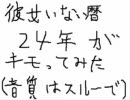 彼女いない暦
24年が
キモってみた
(音質はスルーで)